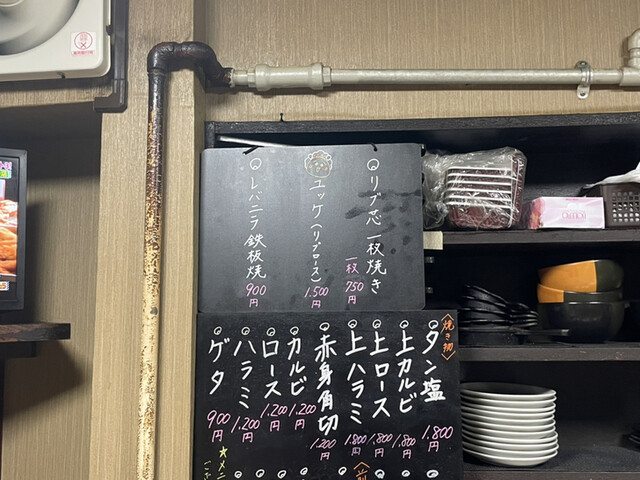 リブ芯一枚焼き
一枚 750円
ユッケ(リブロース)
1.500円
レバニラ鉄板焼
900円
〈焼き物〉
タン塩
1.800円
上カルビ
1.800円
上ロース
1.800円
上ハラミ
1.800円
赤身角切
1.200円
カルビ
1.200円
ロース
1.200円
ハラミ
1.200円
ゲタ
900円
★メニ